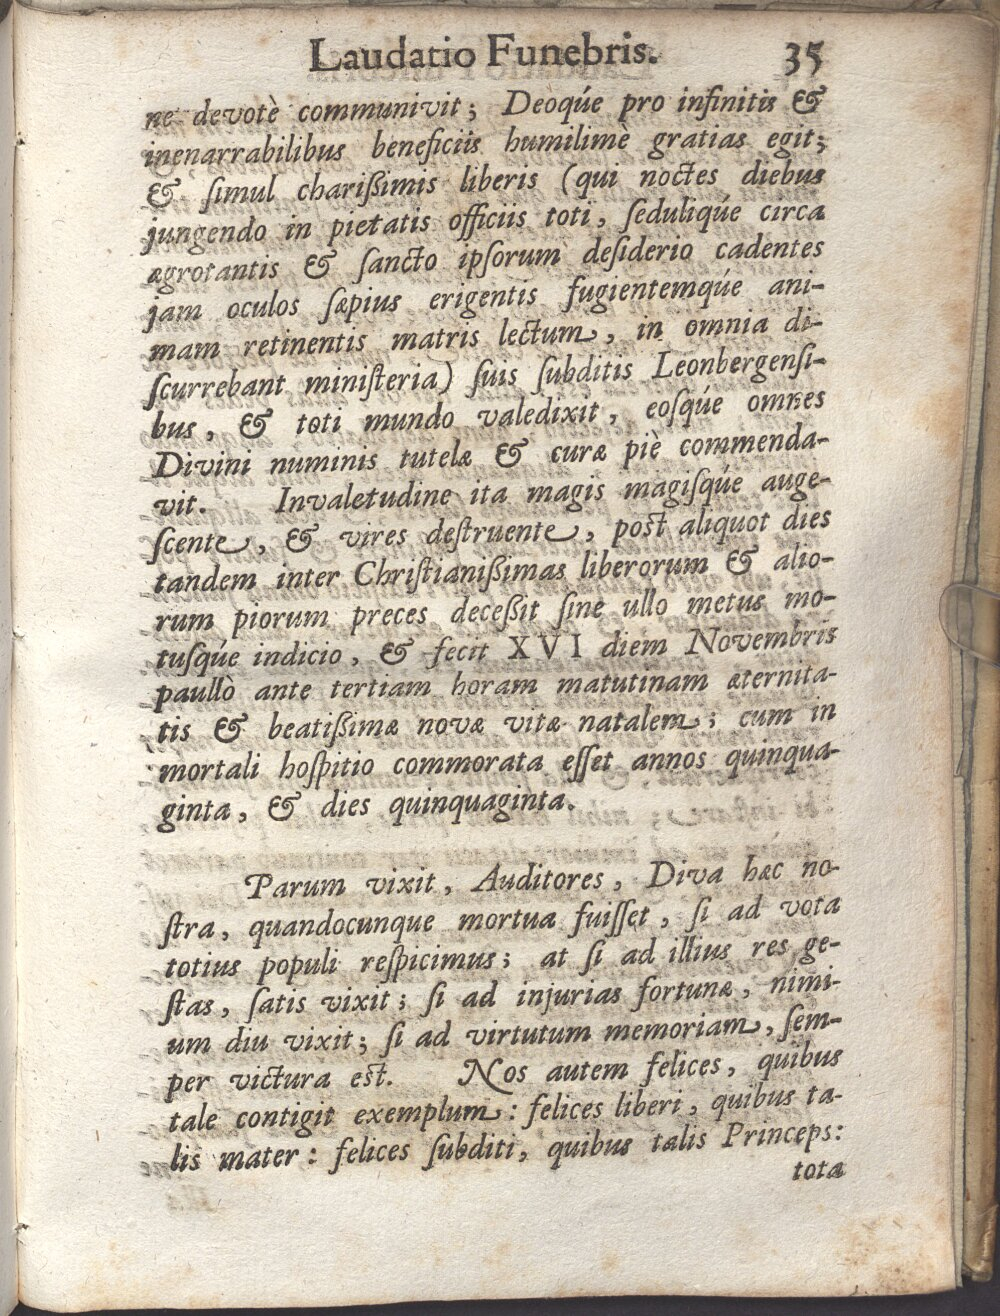 Laudatio Funebris. 35
ne devotè communivit; Deoqúe pro infinitis &
inenarrabilibus beneficiis humilime gratias egit;
& ſimul charißimis liberis (qui noctes diebus
jungendo in pietatis officiis toti, ſeduliqúe circa
ægrotantis & ſancto ipſorum deſiderio cadentes
jam oculos ſæpius erigentis fugientemqúe ani-
mam retinentis matris lectum, in omnia di-
ſcurrebant miniſteria) ſuis ſubditis Leonbergenſi-
bus, & toti mundo valedixit, eoſqúe omnes
Divini numinis tutelæ & curæ piè commenda-
vit. Invaletudine ita magis magiſqúe auge-
ſcente, & vires deſtruente, post aliquot dies
tandem inter Chriſtianißimas liberorum & alio-
rum piorum preces deceßit ſine ullo metus mo-
tuſqúe indicio, & fecit XVI diem Novembris
paullò ante tertiam horam matutinam æternita-
tis & beatißimæ novæ vitæ natalem; cum in
mortali hoſpitio commorata eſſet annos quinqua-
ginta, & dies quinquaginta.
Parum vixit, Auditores, Diva hæc no-
ſtra, quandocunque mortua fuiſſet, ſi ad vota
totius populi reſpicimus; at ſi ad illius res ge-
ſtas, ſatis vixit; ſi ad injurias fortunæ, nimi-
um diu vixit; ſi ad virtutum memoriam, ſem-
per victura est. Nos autem felices, quibus
tale contigit exemplum: felices liberi, quibus ta-
lis mater: felices ſubditi, quibus talis Princeps:
tota